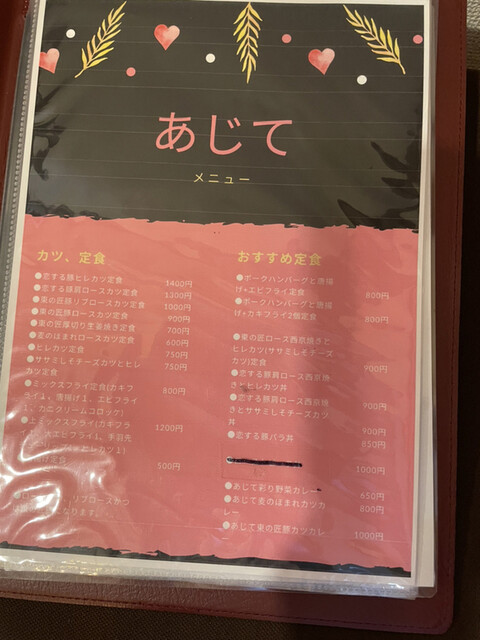 あじて
メニュー
カツ、定食
●恋する豚ヒレカツ定食 1400円
●恋する豚肩ロースカツ定食 1200円
●東の匠豚リブロースカツ定食 1000円
●東の匠豚ロースカツ定食 900円
●東の匠厚切り生姜焼き定食 700円
●麦のほまれロースカツ定食 600円
●ヒレカツ定食 750円
●ササミしそチーズカツとヒレ 750円
カツ定食
●ミックスフライ定食(カキフ 800円
ライ1、唐揚げ1、エビフライ
1、カニクリームコロッケ)
●上ミックスフライ(カキフラ 1200円
大エビフライ1、手羽先
ヒレカツ1)
500円
おすすめ定食
●ポークハンバーグと唐揚
げ+エビフライ定食 800円
●ポークハンバーグと唐揚
げ+カキフライ2個定食 800円
●東の匠ロース西京焼きと
ヒレカツ(ササミしそチーズ
カツ)定食 900円
●恋する豚肩ロース西京焼
きとヒレカツ丼 900円
●恋する豚肩ロース西京焼
きとササミしそチーズカツ
丼 900円
●恋する豚バラ丼 850円
1000円
●あじて彩り野菜カレー 650円
●あじて麦のほまれカツカ 800円
レー
●あじて東の匠豚カツカレ 1000円